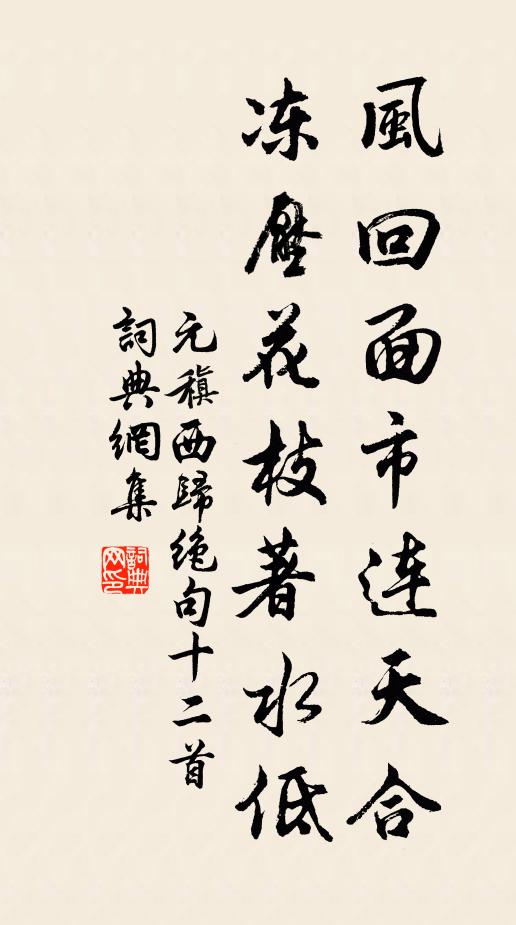 風回面市連天合
冻壓花枝著水低
元稹西歸绝句十二首
詞典網集
詞典网印